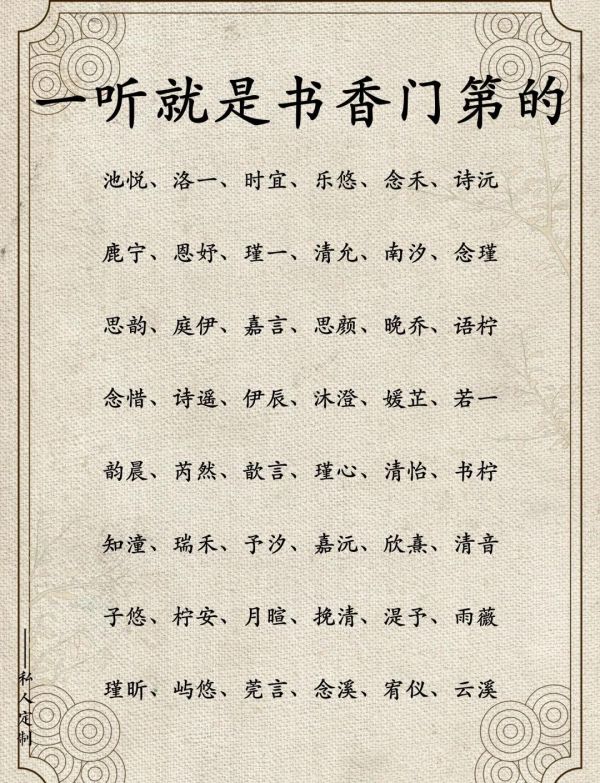 一听就是书香门第的
池悦、洛一、时宜、乐悠、念禾、诗沅
鹿宁、恩妤、瑾一、清允、南汐、念瑾
思韵、庭伊、嘉言、思颜、晚乔、语柠
念惜、诗遥、伊辰、沐澄、媛芷、若一
韵晨、芮然、歆言、瑾心、清怡、书柠
知潼、瑞禾、予汐、嘉沅、欣熹、清音
子悠、柠安、月暄、挽清、湜予、雨薇
瑾昕、屿悠、莞言、念溪、宥仪、云溪
——私人定制